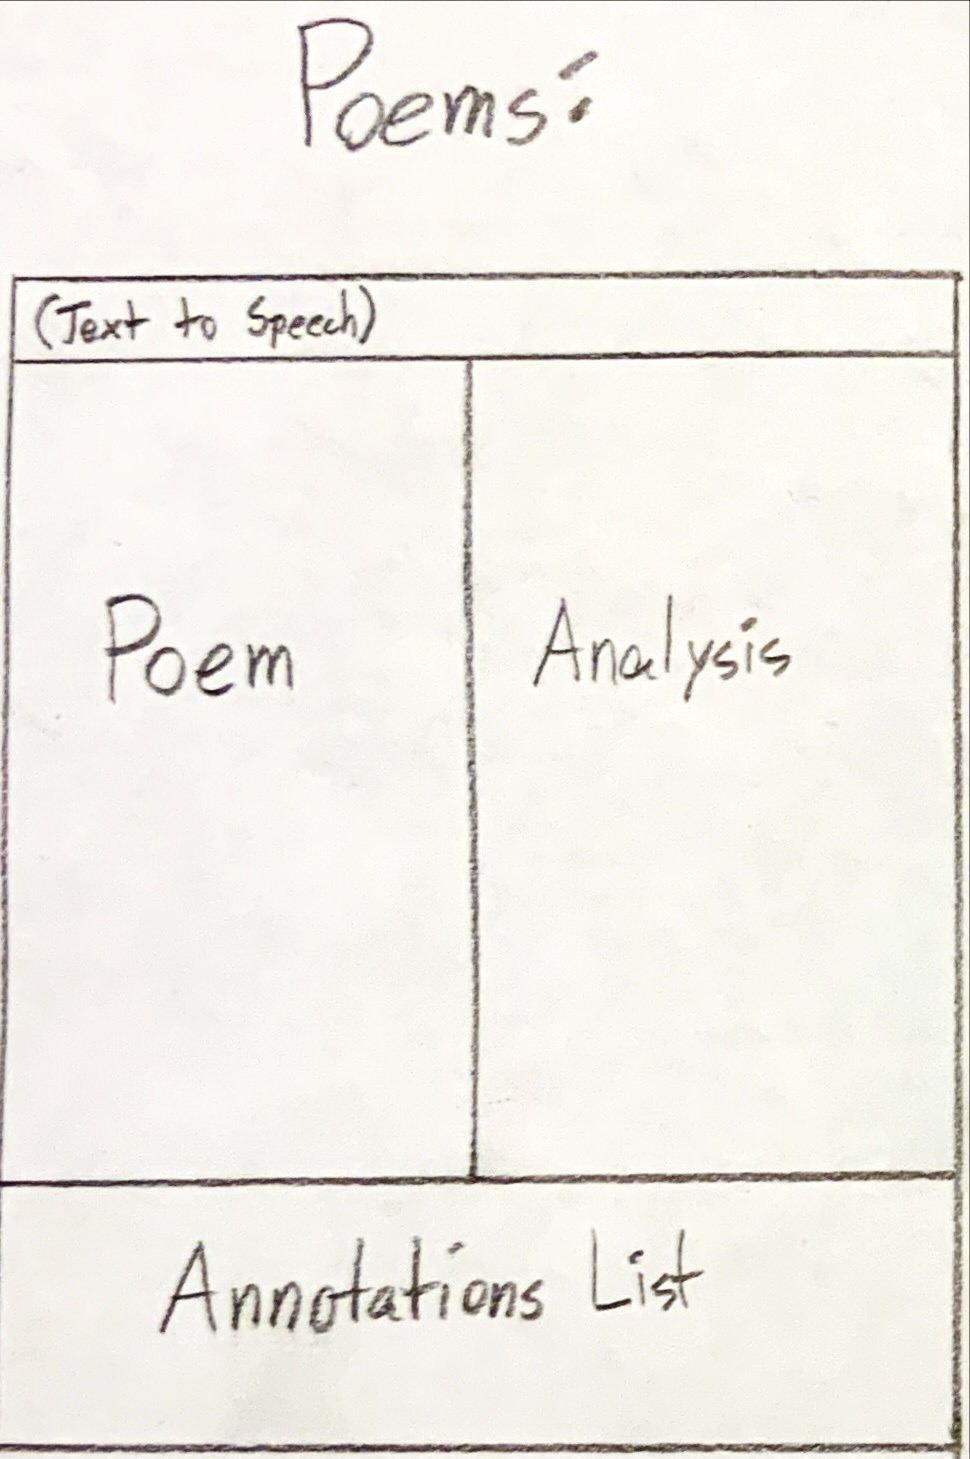 Poems:
(Text to Speech)
Poem
Analysis
Annotations List